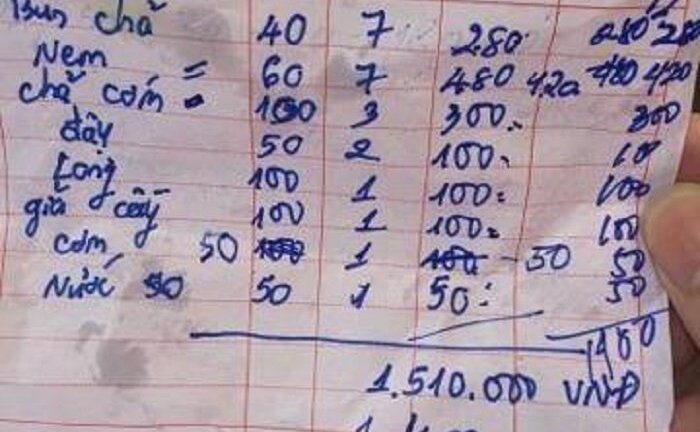 Bún chả 40 7 280 280 280
Nem = 60 7 480 420 480 420
chả cốm - 100 3 300 300
đậy 50 2 100 100
Lòng 100 1 100 100
giả cầy 100 1 100 100
cơm 50 100 1 100 - 50 50
Nước 50 50 1 50 50
1.510.000 VNĐ